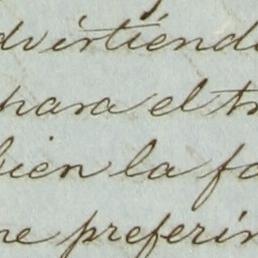 dvirtiendo
para el tr
bien la fo
ne preferir